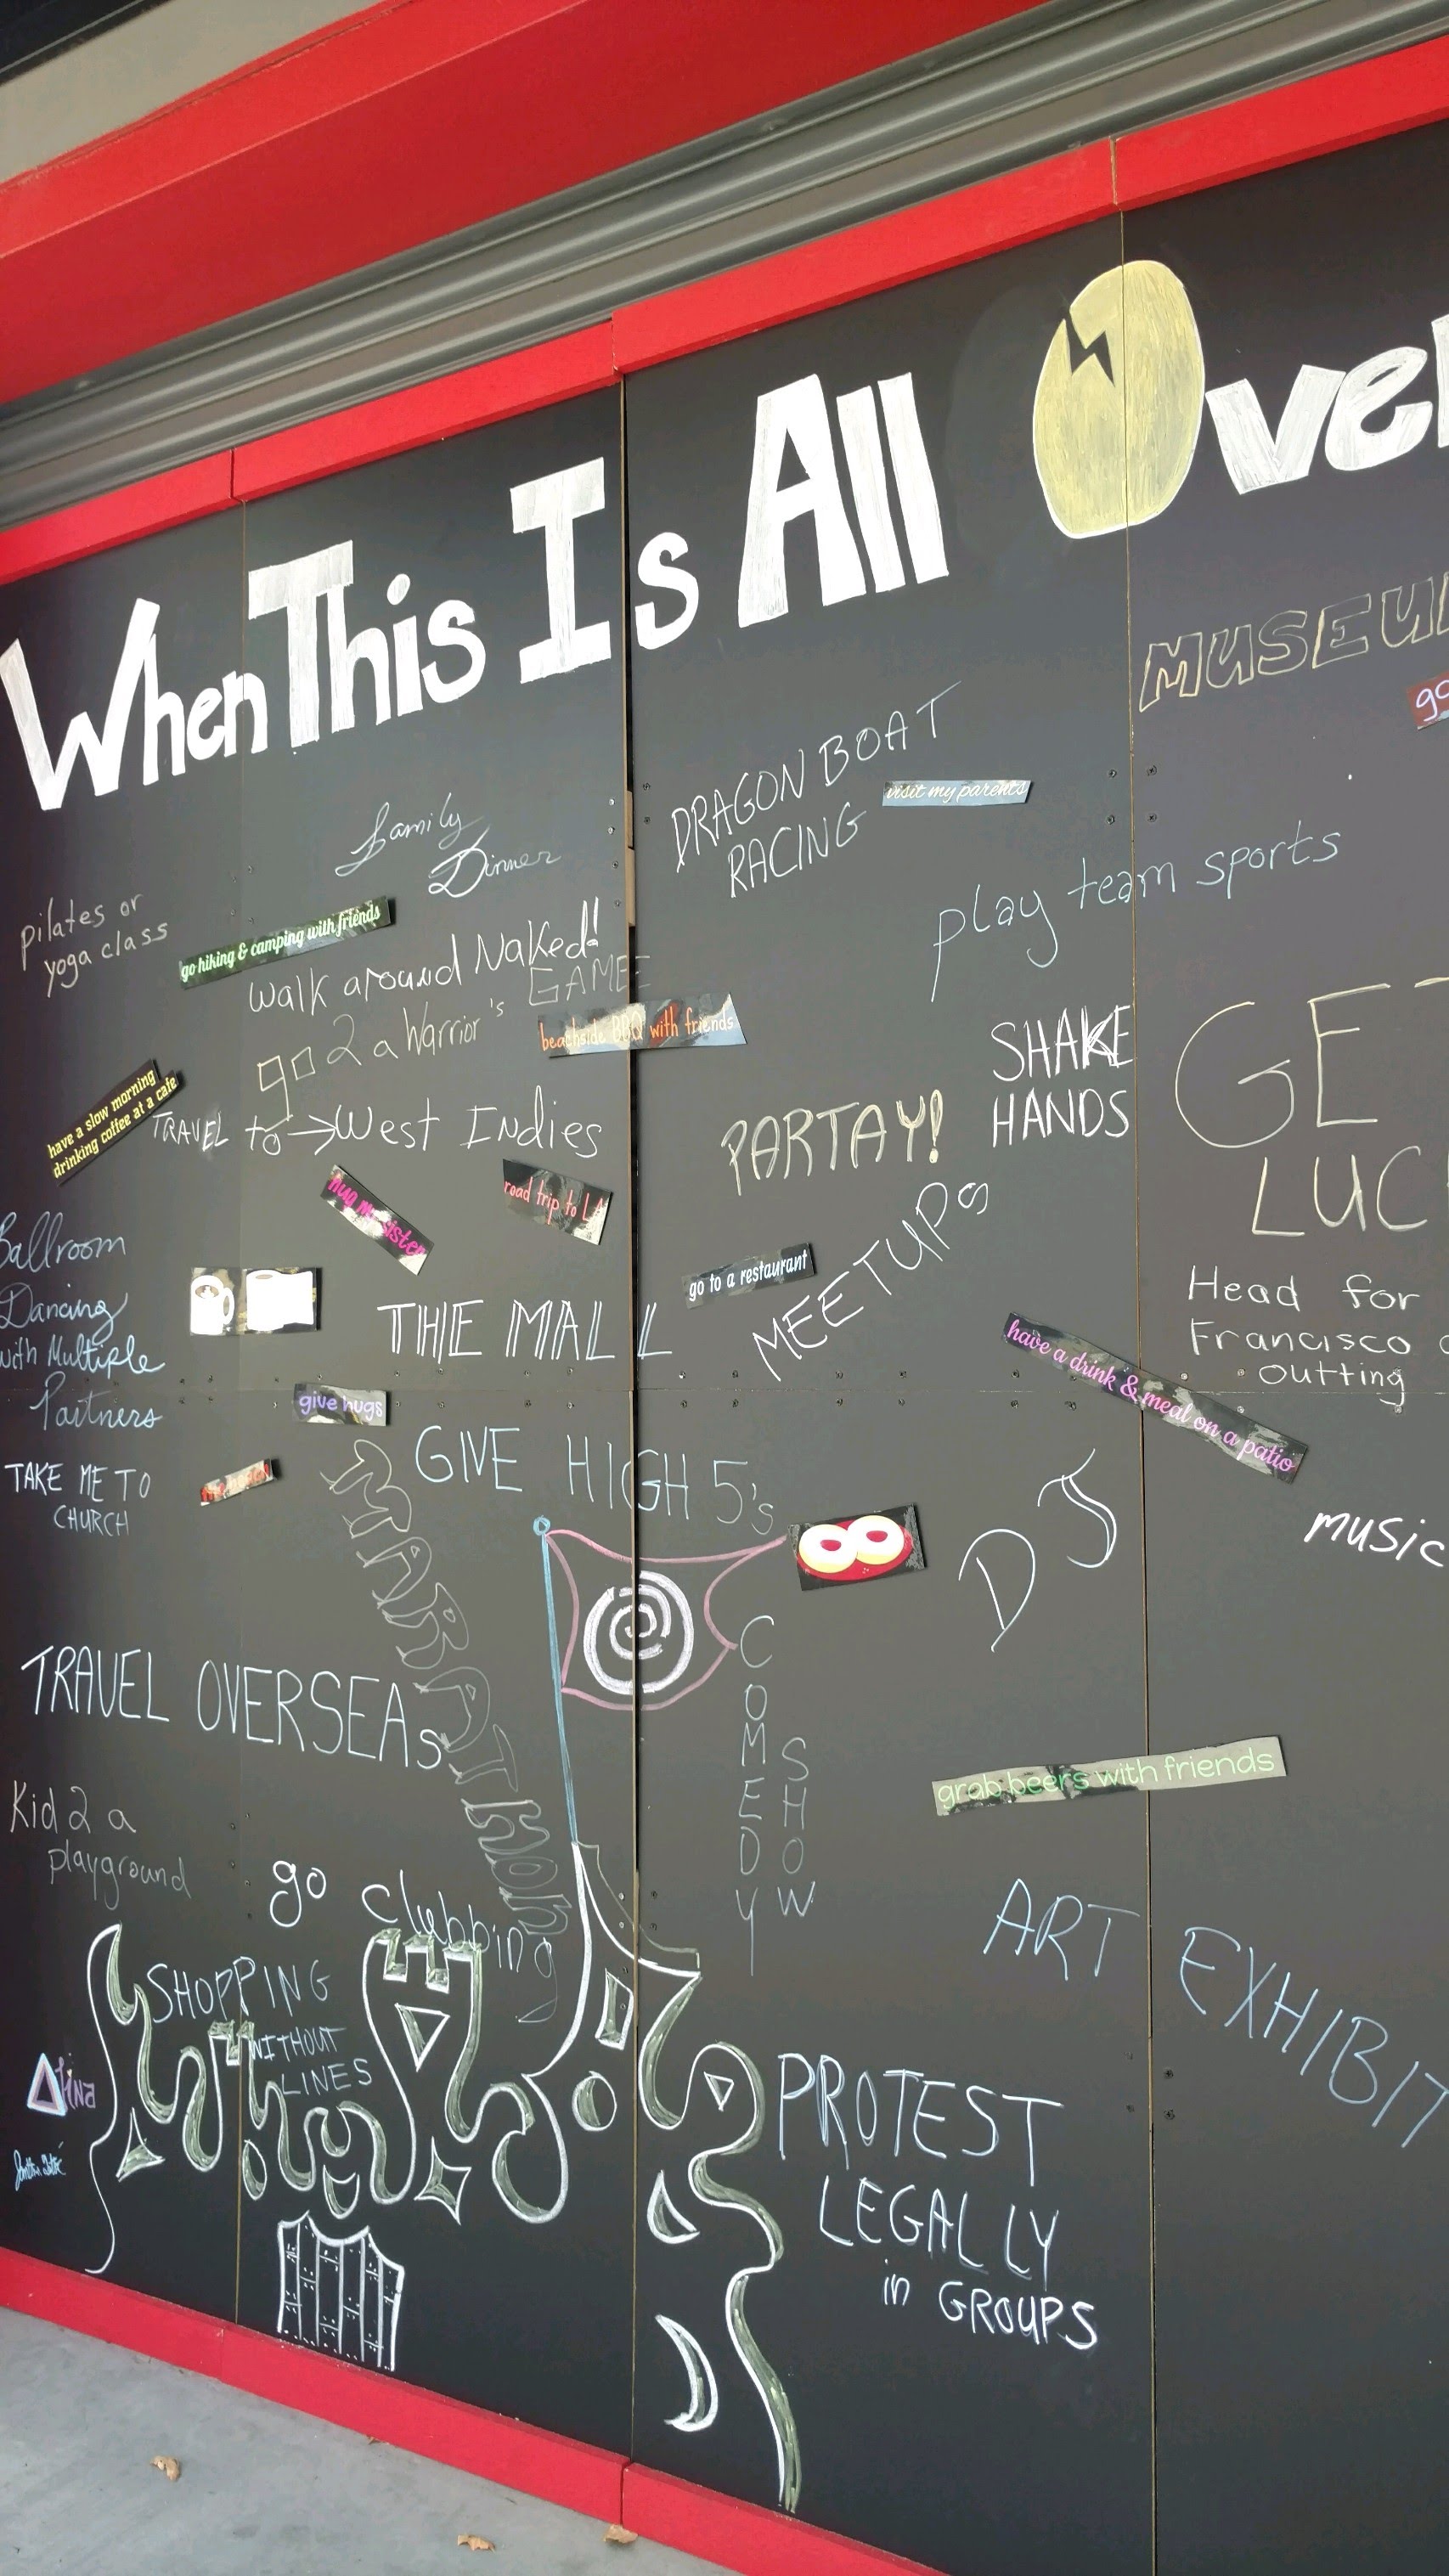 When This Is All Over
MUSEUM
family
Dinner
DRAGON BOAT
RACING
visit my parents
pilates or
yoga class
go hiking & camping with friends
walk around Naked!
play team sports
go 2 a Warrior's GAME
beachside BBQ with friends
SHAKE
HANDS
GET
have a slow morning
drinking coffee at a cafe
TRAVEL to → West Indies
PARTAY!
hug my sister
road trip to LA
MEETUPS
Ballroom
Dancing
with Multiple
Partners
go to a restaurant
THE MALL
Head for
Francisco
outting
have a drink & meal on a patio
give hugs
GIVE HIGH 5's
TAKE ME TO
CHURCH
MARRATHON
DJ
music
TRAVEL OVERSEAs
COMEDY
SHOW
grab beers with friends
Kid 2 a
playground
go clubbing
ART EXHIBIT
SHOPPING
WITHOUT
LINES
Alina
PROTEST
LEGALLY
in GROUPS